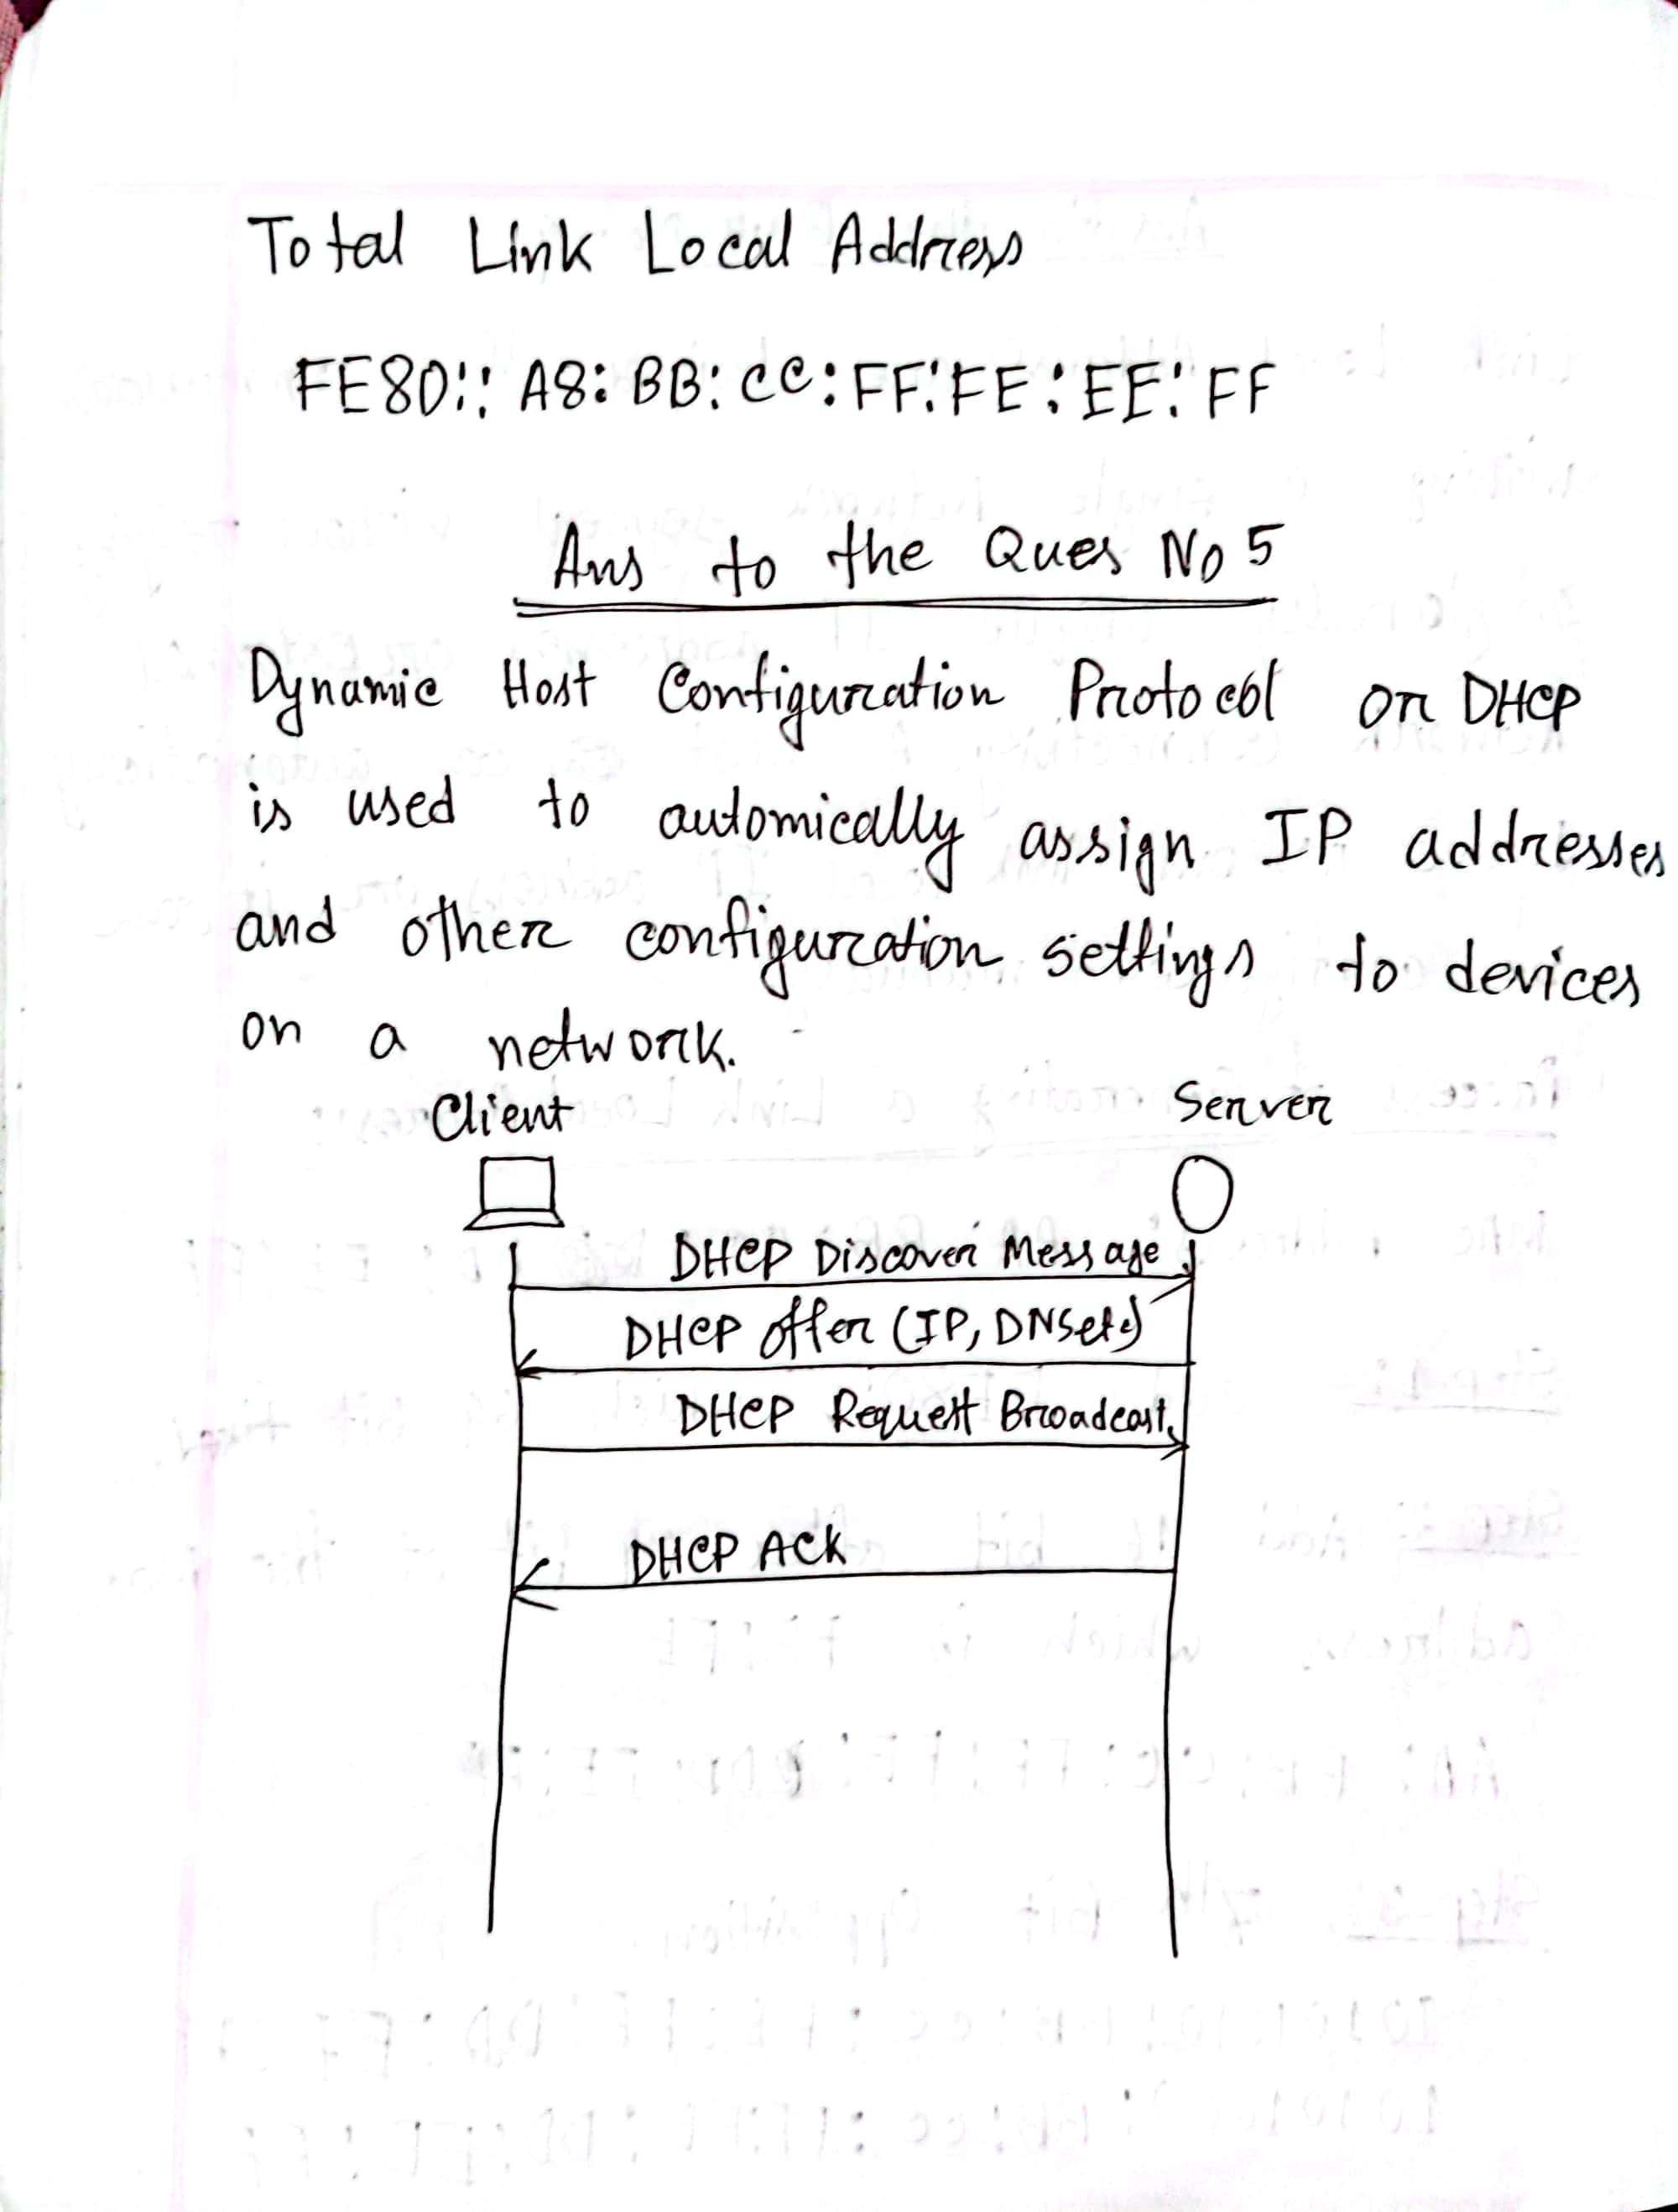 Total Link Local Address
FE80:: A8: BB: CC: FF:FE: EE: FF
Ans to the Ques No 5
Dynamic Host Configuration Protocol or DHCP
is used to automically assign IP addresses
and other configuration settings to devices
on a network.
Client Server
DHCP Discover Message
DHCP offer (IP, DNS etc)
DHCP Request Broadcast
DHCP ACK